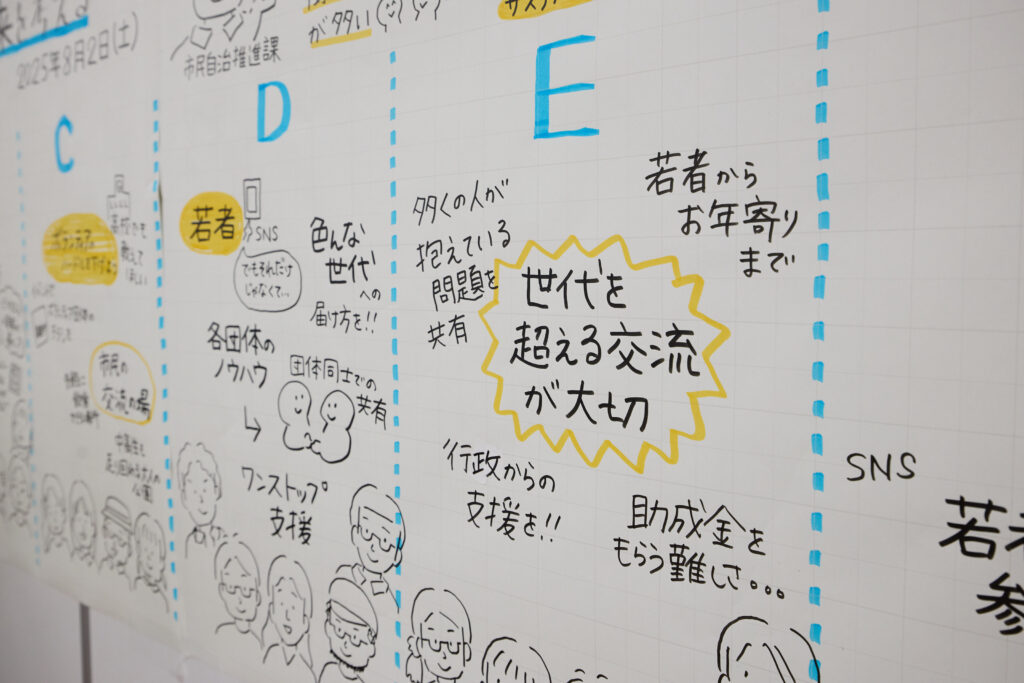 来を考える
2025年8月2日(土)
市民自治推進課
が多い
C
市民の
交流の場
D
若者
SNS
でもそれだけ
じゃなくて…
色んな
世代
への
届け方を!!
各団体の
ノウハウ
団体同士での
共有
ワンストップ
支援
E
多くの人が
抱えている
問題を
共有
若者から
お年寄り
まで
世代を
超える交流
が大切
行政からの
支援を!!
助成金を
もらう難しさ...
SNS
若者
参